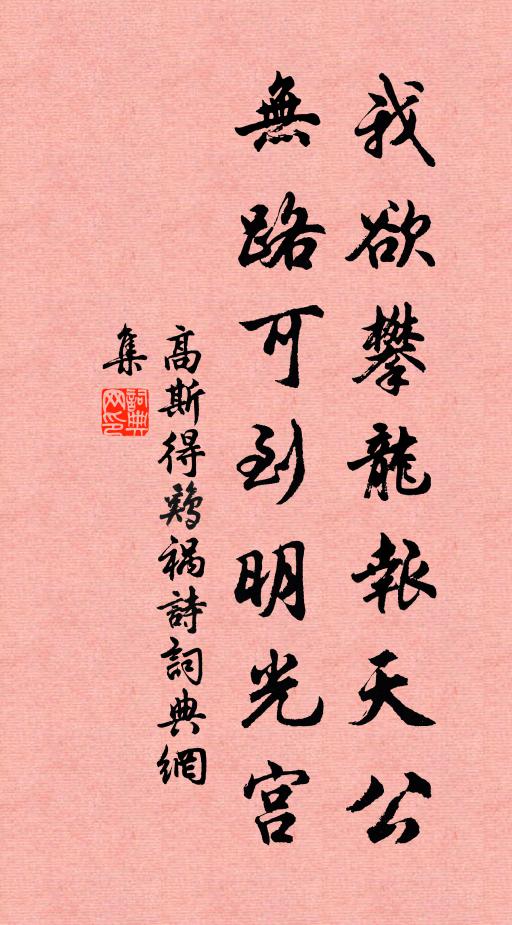 我欲攀龍報天公
無路可到明光宮
高斯得鷄禍詩詞典網
集
詞典网印